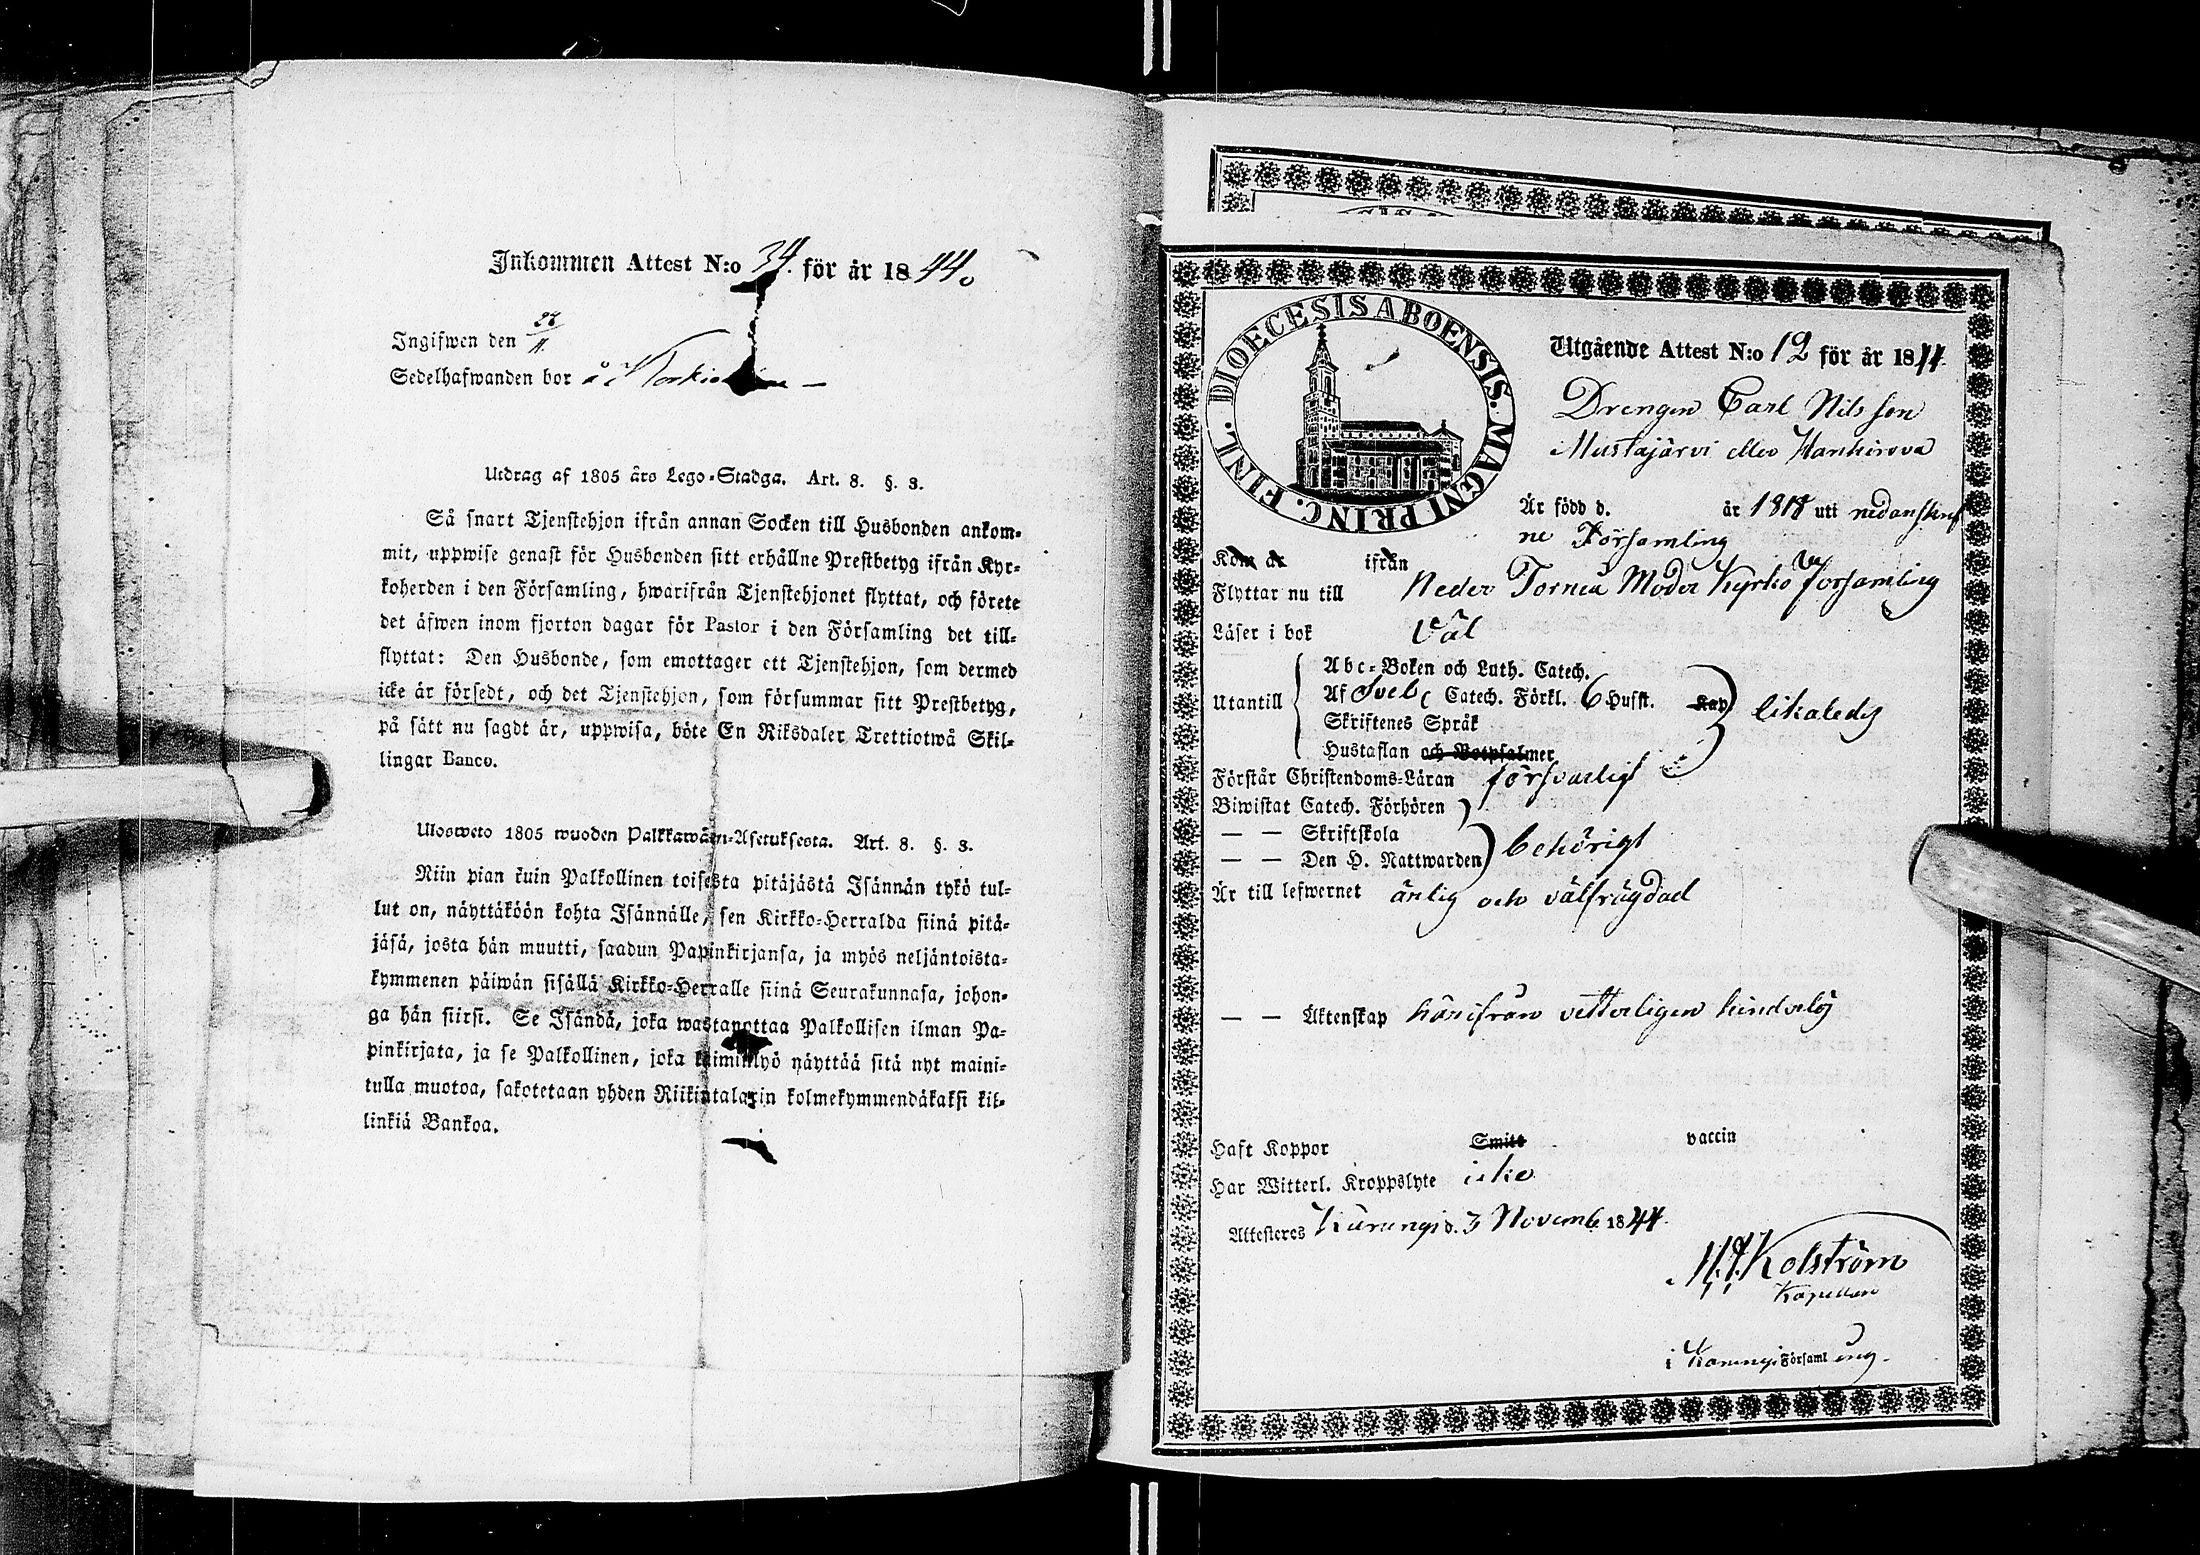 Inkommen Attest N:o 34. för år 1844.
Ingifwen den 28/11.
Sedelhafwanden bor å
Utdrag af 1805 års Lego-Stadga. Art. 8. §. 3.
Så snart Tjenstehjon ifrån annan Socken till Husbonden ankom-
mit, uppwise genast för Husbonden sitt erhållne Prestbetyg ifrån Kyr-
koherden i den Församling, hwarifrån Tjenstehjonet flyttat, och förete
det äfwen inom fjorton dagar för Pastor i den Församling det till-
flyttat: Den Husbonde, som emottager ett Tjenstehjon, som dermed
icke är försedt, och det Tjenstehjon, som försummar sitt Prestbetyg,
på sätt nu sagdt är, uppwisa, böte En Riksdaler Trettiotwå Skil-
lingar Banco.
Ulosweto 1805 wuoden Palkkawäen-Asetuksesta. Art. 8. §. 3.
Niin pian kuin Palkollinen toisesta pitäjästä Isännän tykö tul-
lut on, näyttäköön kohta Isännälle, sen Kirkko-Herralda siinä pitä-
jäsä, josta hän muutti, saadun Papinkirjansa, ja myös neljäntoista-
kymmenen päiwän sisällä Kirkko-Herralle siinä Seurakunnasa, johon-
ga hän siirsi. Se Isändä, joka wastanottaa Palkollisen ilman Pa-
pinkirjata, ja se Palkollinen, joka laiminlyö näyttää sitä nyt maini-
tulla muotoa, sakotetaan yhden Riikintalarin kolmekymmendäkaksi kil-
linkiä Bankoa.
DIOECESIS ABOENSIS. MAGNI PRINC. FINL.
Utgående Attest N:o 12 för år 1844.
Drengen Carl Nilsson
Mustajärvi eller Wankirova
Är född d. år 1818 uti nedanskref
ne Församling
Kom år ifrån
Flyttar nu till Neder Torneå Moder Kyrko Församling
Läser i bok Väl
Utantill
Abc-Boken och Luth. Catech.
Af Sveb. Catech. Förkl. 6 Hufst. Kap
Skriftenes Språk
Hustaflan och Botpsalmer
likaledes
Förstår Christendoms-Läran försvarligt
Biwistat Catech. Förhören
— — Skriftskola
— — Den H. Nattwarden
behörigt
Är till lefwernet ärlig och välfrägdad
— — Äktenskap härifrån vetterligen hinderlös
Haft Koppor Smitt vaccin
Har Witterl. Kroppslyte icke
Attesteres Karungi d. 3 Novemb. 1844.
M. J. Kolström
Kapellan
i Karungi Församling.